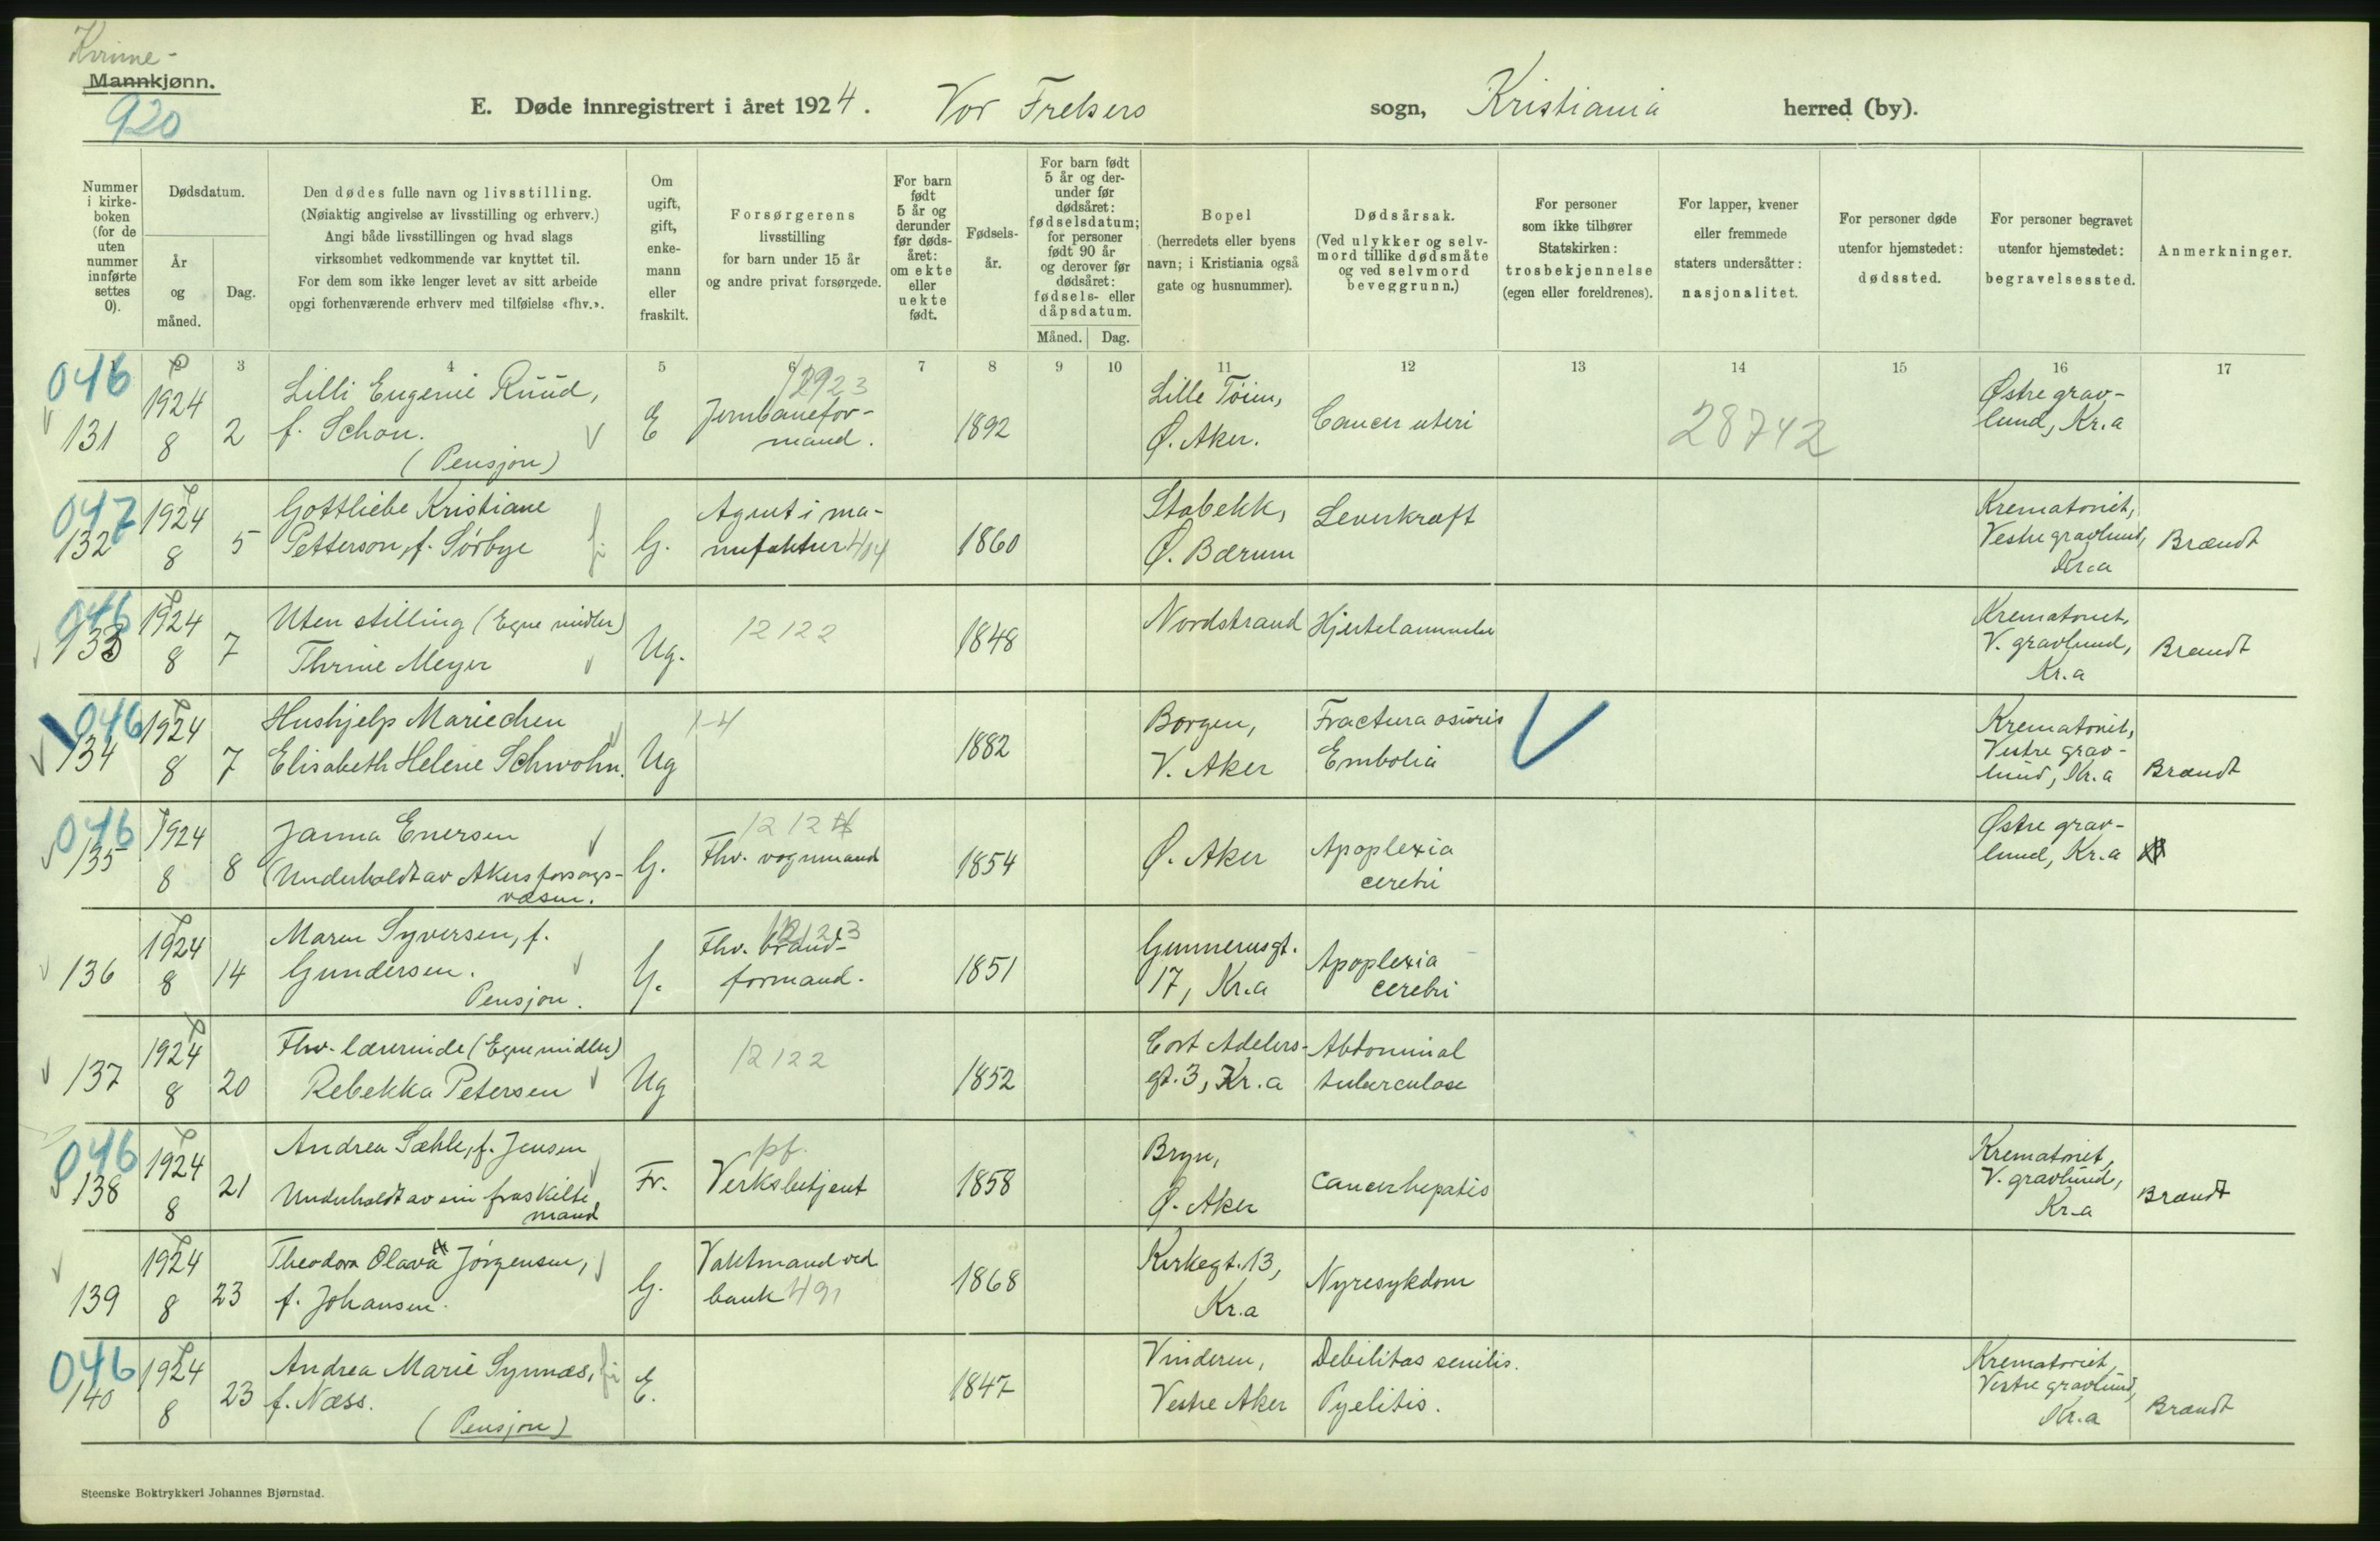 Kvinne-
Mannkjønn.
920
E. Døde innregistrert i året 1924. Vor Frelsers sogn, Kristiania herred (by).
Nummer i kirkeboken (for de uten nummer innførte settes 0).
Dødsdatum.
År og måned.
Dag.
Den dødes fulle navn og livsstilling.
(Nøiaktig angivelse av livsstilling og erhverv.)
Angi både livsstillingen og hvad slags
virksomhet vedkommende var knyttet til.
For dem som ikke lenger levet av sitt arbeide
opgi forhenværende erhverv med tilføielse «fhv.».
Om ugift, gift, enkemann eller fraskilt.
Forsørgerens
livsstilling
for barn under 15 år
og andre privat forsørgede.
For barn født 5 år og derunder før dødsåret: om ekte eller uekte født.
Fødselsår.
For barn født 5 år og derunder før dødsåret: fødselsdatum; for personer født 90 år og derover før dødsåret: fødsels- eller dåpsdatum.
Måned. Dag.
Bopel
(herredets eller byens
navn; i Kristiania også
gate og husnummer).
Dødsårsak.
(Ved ulykker og selvmord tillike dødsmåte og ved selvmord beveggrunn.)
For personer
som ikke tilhører
Statskirken:
trosbekjennelse
(egen eller foreldrenes).
For lapper, kvener
eller fremmede
staters undersåtter:
nasjonalitet.
For personer døde
utenfor hjemstedet:
dødssted.
For personer begravet
utenfor hjemstedet:
begravelsessted.
Anmerkninger.
2 3 4 5 6 7 8 9 10 11 12 13 14 15 16 17
046 131 1924 8 2 Lilli Eugenie Ruud, f. Schou. (Pensjon) E 12923 Jernbaneformand. 1892 Lille Tøien, Ø. Aker. Cancer uteri 28742 Østre gravlund, Kr.a
047 132 1924 8 5 Gottliebe Kristiane Petterson, f. Sørbye G. Agent i manufaktur 414 1860 Stabekk, Ø. Bærum Leverkræft Krematoriet, Vestre gravlund, Kr.a Brændt
046 133 1924 8 7 Uten stilling (Egne midler) Thrine Meyer Ug. 12122 1848 Nordstrand Hjertelammelse Krematoriet, V. gravlund, Kr.a Brændt
046 134 1924 8 7 Hushjelp Mariechen Elisabeth Helene Schwohn. Ug 1-4 1882 Borgen, V. Aker Fractura Embolia Krematoriet, Vestre gravlund, Kr.a Brændt
046 135 1924 8 8 Janna Enersen (Underholdt av Akers forsorgsvæsen. G. 1212 Fhv. vognmand 1854 Ø. Aker Apoplexia cerebri Østre gravlund, Kr.a
136 1924 8 14 Maren Syversen, f. Gundersen. Pensjon. G. Fhv. brandformand. 1851 Gunnerusgt. 17, Kr.a Apoplexia cerebri
137 1924 8 20 Fhv. lærerinde (Egne midler) Rebekka Petersen Ug 12122 1852 Cort Adelersgt. 3, Kr.a Abdominal tuberculose
046 138 1924 8 21 Andrea Sæhle, f. Jensen Underholdt av sin fraskilte mand Fr. pf. Verksbetjent 1858 Bryn, Ø. Aker Cancer hepatis Krematoriet, V. gravlund, Kr.a Brændt
139 1924 8 23 Theodora Olava Jørgensen, f. Johansen. G. Vaktmand ved bank 491 1868 Kirkegt. 13, Kr.a Nyresykdom
046 140 1924 8 23 Andrea Marie Synnæs, f. Næss. (Pensjon) E. 1847 Vinderen, Vestre Aker Debilitas senilis. Pyelitis. Krematoriet, Vestre gravlund, Kr.a Brændt
Steenske Boktrykkeri Johannes Bjørnstad.